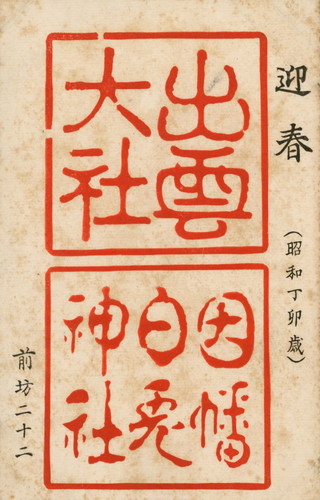 迎春
(昭和丁卯歳)
出雲
大社
因幡
白兎
神社
前坊二十二